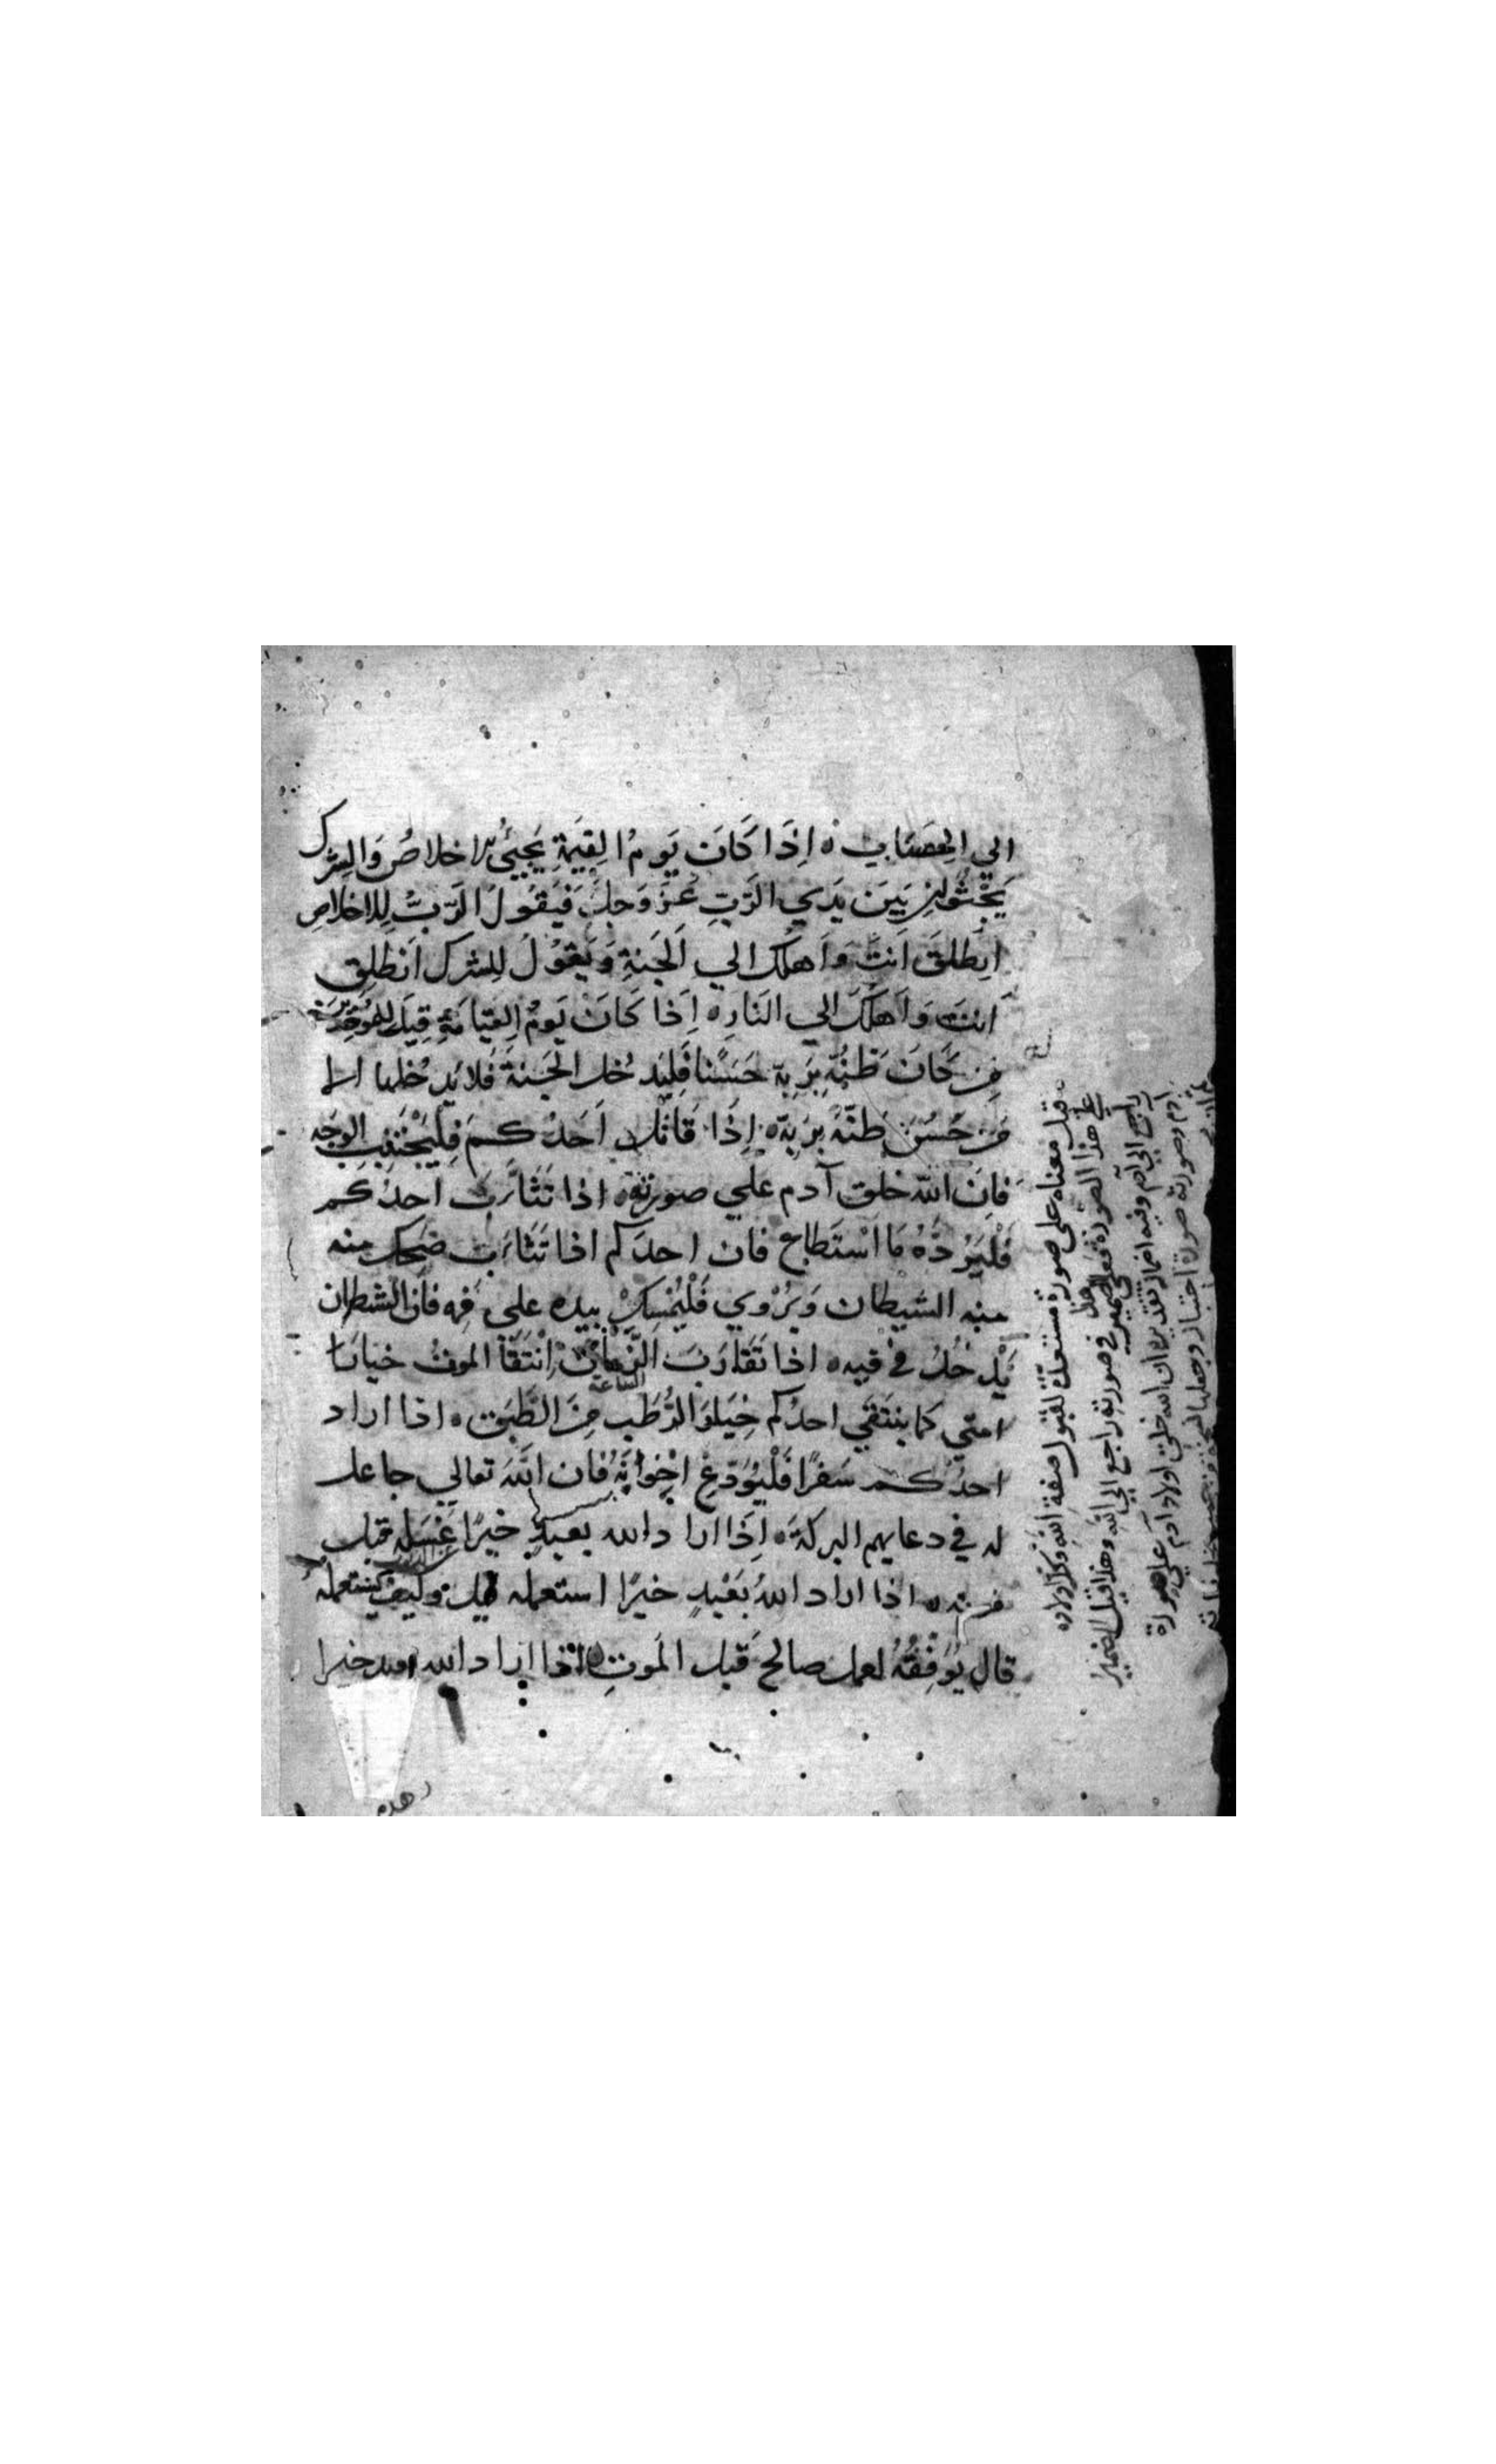 الي الحصاب ه اِذَا كَانَ يَومُ القِيٰمَةِ يَجِيئُ الاخلاصُ وَالشرك
يَجْثُوانِ بَيَن يَدَي الرَّبِ عَزَّ وَجلَّ فَيَقُولُ الرّبُّ لِلاخلاصِ
انطَلِقَ اَنتَ وَاَهلُك الي الَجنةِ وَيَقُولُ للشرك اَنْطَلِق
اَنتَ وَاَهلُكَ الي النَارِه اِذا كَانَ يَومُ القيامَةِ قِيلَ
مَن كَانَ ظَنُّه بِرَبِهّ حَسَنا فَليَدخُل الجَنةَ فَلايَدخُلها الا
مَن حَسُنَ ظَنّهُ بِرَبِهّ ه اِذَا قَاتَل اَحَدُكم فَليَجْتَنِبِ الوَجه
فَاِنَ الله خلق آدم علي صورته ه اذا تَثَاَءَبَ احدُكم
فَلْيَرُدّهُ مَا اسْتَطاع فان احدَكم اذا تَثَاءَبَ ضحك منه
منه الشيطان وَيُرْوي فَلْيُمْسِكْ بيده على فمِه فانّ الشيطان
يَدْخُلُ في فيه ه اذا تَقَارَبَ الزّمانُ اِنْتَقَا الموتُ خيارَ
الساعة
امتي كما ينتَقي احدُكم خِيَارَ الرُّطَبِ مِنَ الطَّبَقِ ه اذا اراد
احدُكم سَفَرًا فَلْيُوَدّعْ اِخْوانَهُ فان اللهَ تعالي جاعل
له في دعايهم البركَة ه اِذَا اراد الله بعبدٍ خيرًا غَسَله قبل
موته ه اذا اراد اللهُ بَعَبْدٍ خيرًا استعمله قيل وكيف يستعمله
قال يُوَفِّقُهُ لعمل صالح قبل الموتِ ه اذا اراد الله بعبد خيرا
قيل معناه على صورة مستعملة لقبول صفة الله
علي هذا الصورة في صورته راجع الي الله وهذا قيل الضمير
راجع الي آدم وفيه اضمار تقديره ان الله خلق اولاد آدم على صورة
آدم وصورته صورة اختيار وجعلها
هده